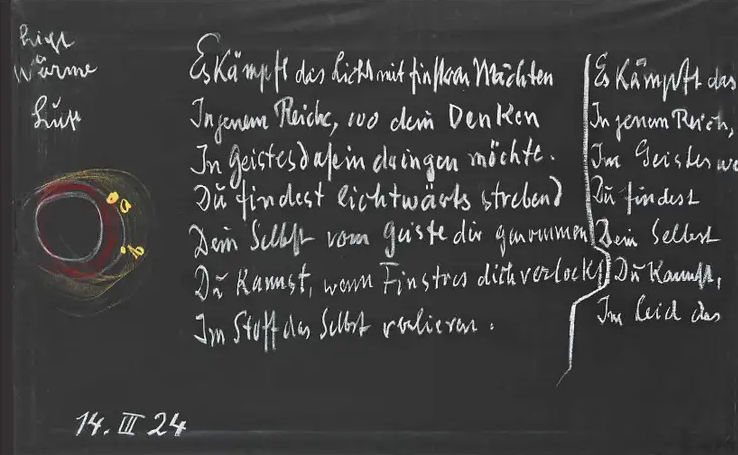 Licht
Wärme
Luft
a
b
Es Kämpft das Licht mit finstren Mächten
In jenem Reiche, wo dein Denken
In Geistesdasein dringen möchte.
Du findest lichtwärts strebend
Dein Selbst vom Geiste dir genommen
Du Kannst, wenn Finstres dich verlockt
Im Stoff das Selbst verlieren.
Es Kämpft das
In jenem Reich,
Im Geistes
Du findest
Dein Selbst
Du Kannst,
Im Leid das
14. III 24